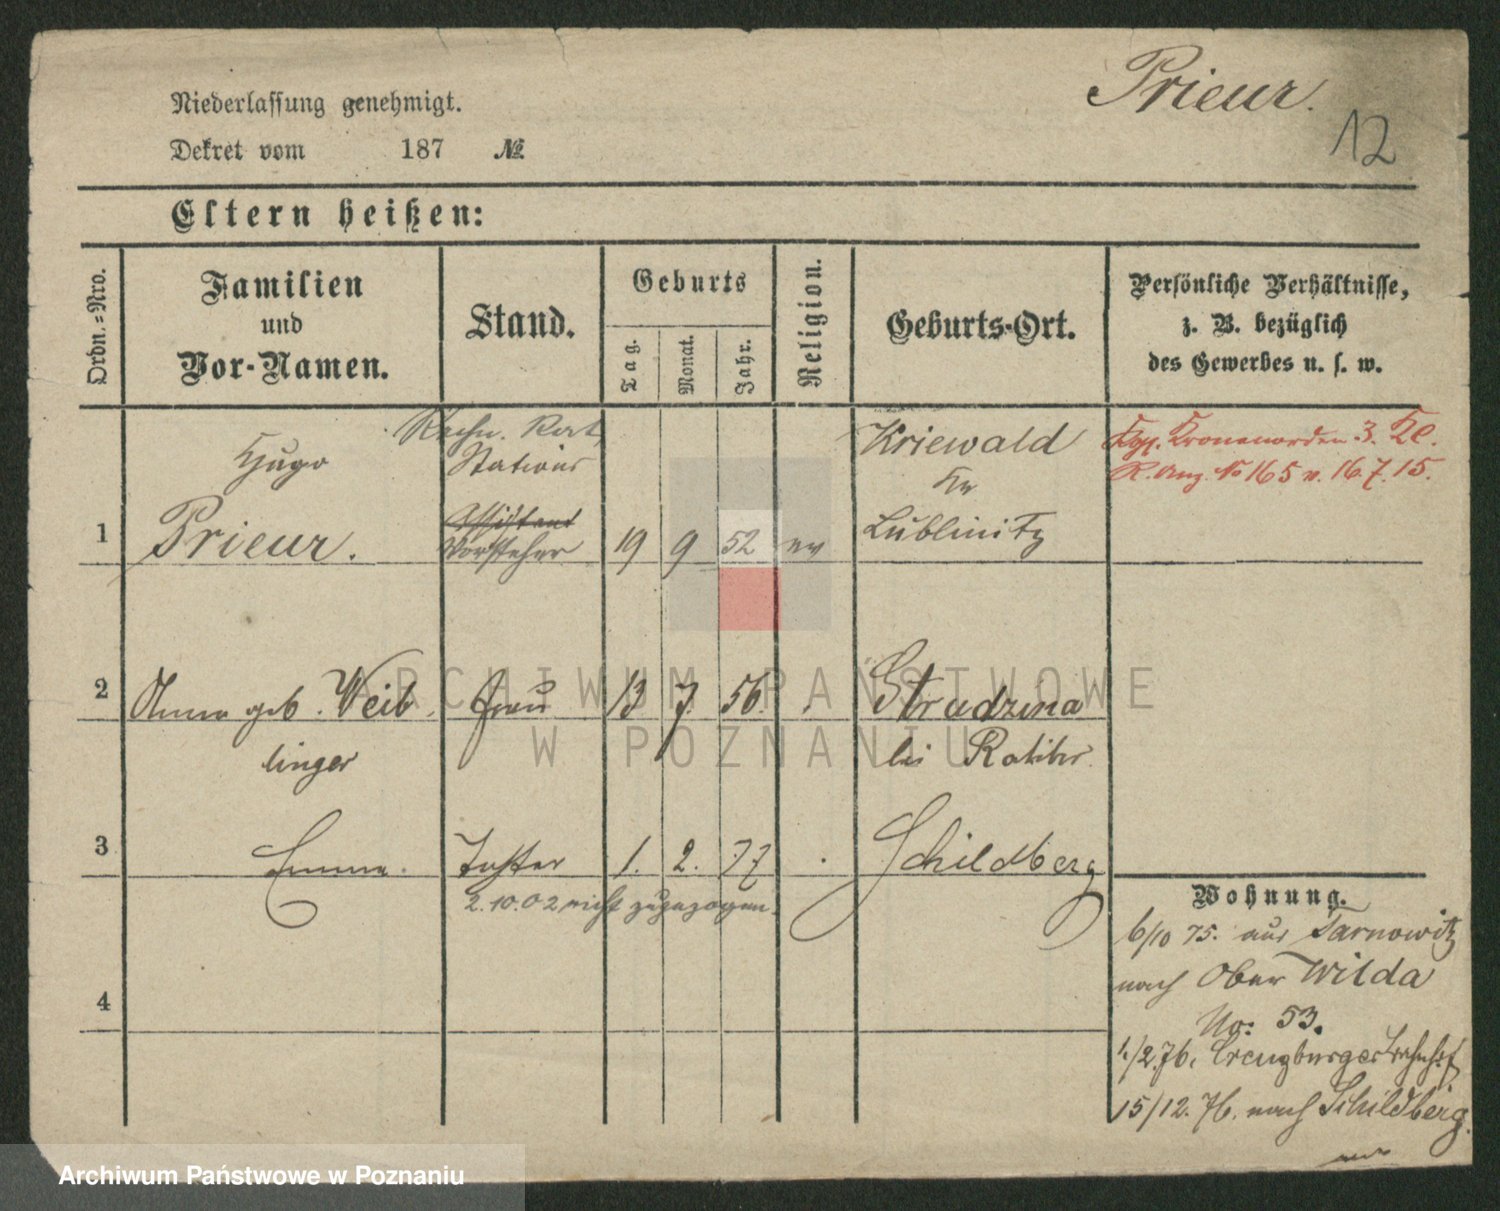 Prieur.
12
Niederlassung genehmigt.
Dekret vom 187 №
Eltern heißen:
Ordn.=Nro.
Familien
und
Vor-Namen.
Stand.
Geburts
Tag.
Monat.
Jahr.
Religion.
Geburts-Ort.
Persönliche Verhältnisse,
z. B. bezüglich
des Gewerbes u. s. w.
1
Hugo
Prieur.
Rechn. Rat
Stations
Assistent
Vorsteher
19 9 52 ev
Kriewald
Kr
Lublinitz
Kgl. Kronenorden 3. Kl.
R. Anz. No 165 v. 16.7.15.
2
Anna geb. Weib
linger
Frau
13 7. 56.
Strudzina
bei Ratibor.
3
Emma.
Tochter
1. 2. 77
Schildberg
2.10.02 nicht zugezogen.
4
Wohnung.
6/10 75. aus Tarnowitz
nach Ober Wilda
No: 53.
1./2.76. Creuzburger Bahnhof
15/12. 76. nach Schildberg.
ARCHIWUM PAŃSTWOWE
W POZNANIU
Archiwum Państwowe w Poznaniu